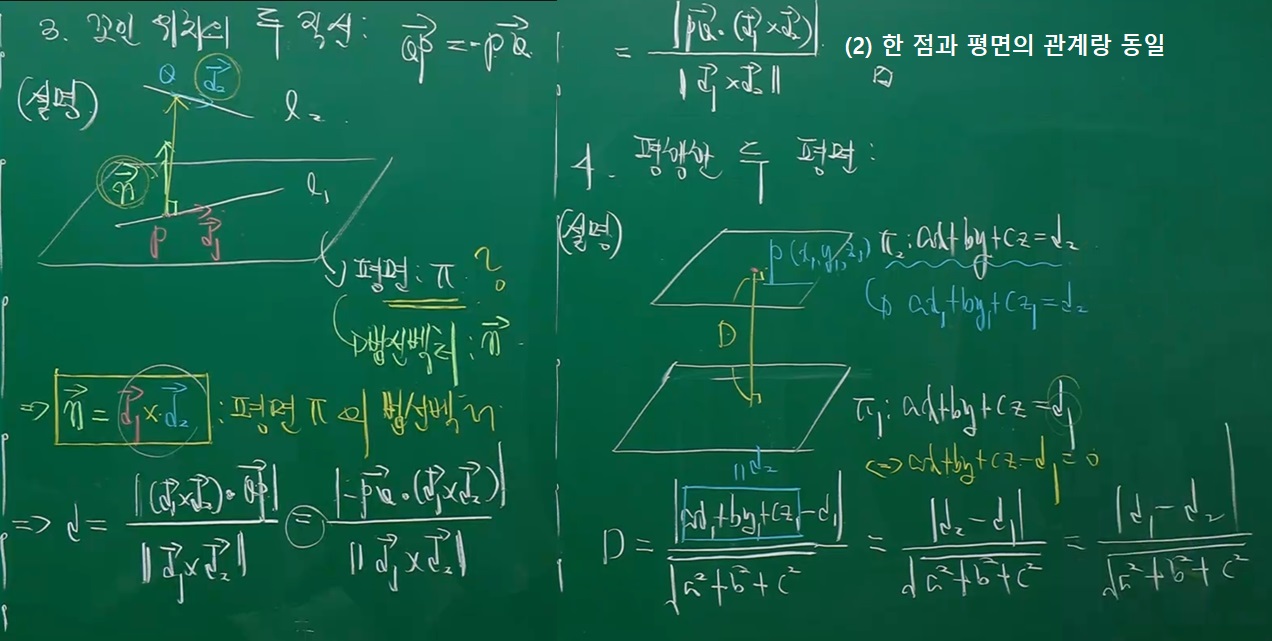 3. 꼬인 위치의 두 직선: \vec{QP} = -\vec{PQ}
(설명)
Q \vec{d_2}
l_2
\vec{n}
l_1
P \vec{d_1}
평면: π ?
법선벡터: \vec{n}
⇒ \vec{n} = \vec{d_1} × \vec{d_2} : 평면 π의 법선벡터
⇒ d = |(\vec{d_1}×\vec{d_2})·\vec{QP}| / ||\vec{d_1}×\vec{d_2}|| = |-\vec{PQ}·(\vec{d_1}×\vec{d_2})| / ||\vec{d_1}×\vec{d_2}||
= |\vec{PQ}·(\vec{d_1}×\vec{d_2})| / ||\vec{d_1}×\vec{d_2}||
(2) 한 점과 평면의 관계랑 동일
4. 평행한 두 평면:
(설명)
P(x_1, y_1, z_1) π_2: ax+by+cz=d_2
ax_1+by_1+cz_1=d_2
D
π_1: ax+by+cz=d_1
⇔ ax+by+cz-d_1=0
|| d_2
D = |ax_1+by_1+cz_1-d_1| / √(a²+b²+c²) = |d_2-d_1| / √(a²+b²+c²) = |d_1-d_2| / √(a²+b²+c²)